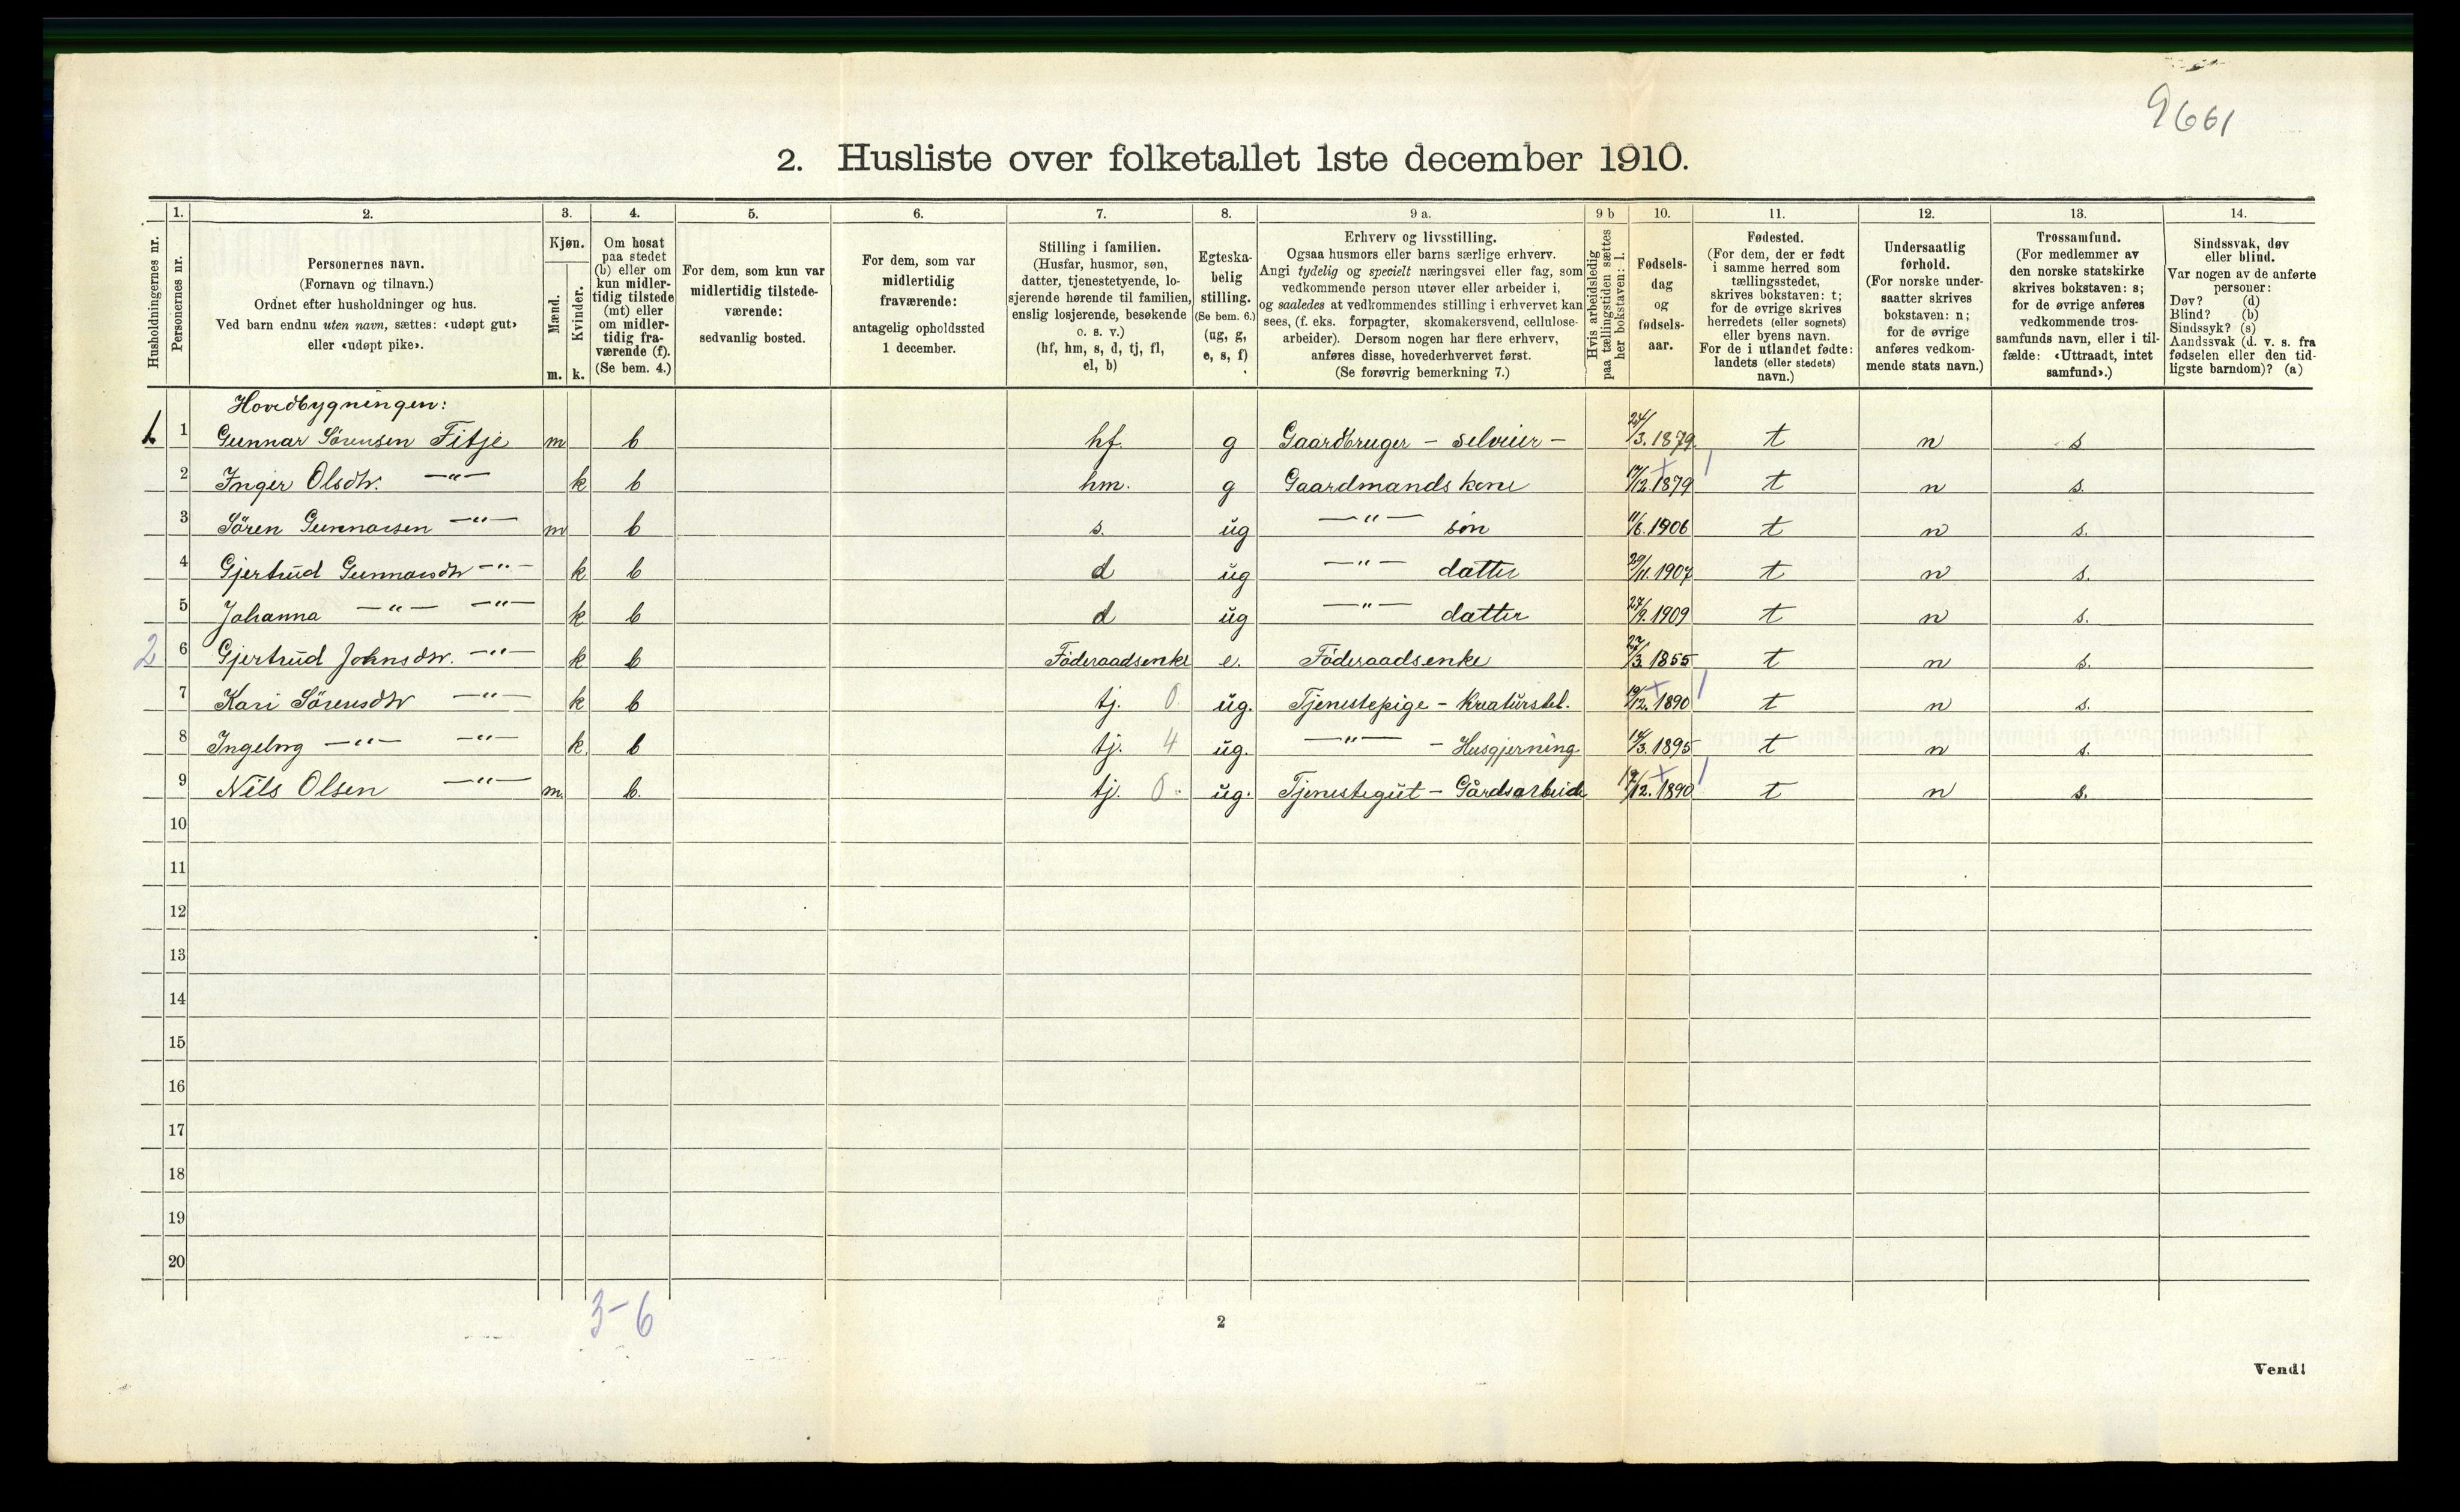 9661
2. Husliste over folketallet 1ste december 1910.
1. 2. 3. 4. 5. 6. 7. 8. 9 a. 9 b 10. 11. 12. 13. 14.
Husholdningernes nr.
Personernes nr.
Personernes navn.
(Fornavn og tilnavn.)
Ordnet efter husholdninger og hus.
Ved barn endnu uten navn, sættes: «udøpt gut»
eller «udøpt pike».
Kjøn.
Mænd.
Kvinder.
m. k.
Om bosat
paa stedet
(b) eller om
kun midler-
tidig tilstede
(mt) eller
om midler-
tidig fra-
værende (f).
(Se bem. 4.)
For dem, som kun var
midlertidig tilstede-
værende:
sedvanlig bosted.
For dem, som var
midlertidig
fraværende:
antagelig opholdssted
1 december.
Stilling i familien.
(Husfar, husmor, søn,
datter, tjenestetyende, lo-
sjerende hørende til familien,
enslig losjerende, besøkende
o. s. v.)
(hf, hm, s, d, tj, fl,
el, b)
Egteska-
belig
stilling.
(Se bem. 6.)
(ug, g,
e, s, f)
Erhverv og livsstilling.
Ogsaa husmors eller barns særlige erhverv.
Angi tydelig og specielt næringsvei eller fag, som
vedkommende person utøver eller arbeider i,
og saaledes at vedkommendes stilling i erhvervet kan
sees, (f. eks. forpagter, skomakersvend, cellulose-
arbeider). Dersom nogen har flere erhverv,
anføres disse, hovederhvervet først.
(Se forøvrig bemerkning 7.)
Hvis arbeidsledig
paa tællingstiden sættes
her bokstaven: l.
Fødsels-
dag
og
fødsels-
aar.
Fødested.
(For dem, der er født
i samme herred som
tællingsstedet,
skrives bokstaven: t;
for de øvrige skrives
herredets (eller sognets)
eller byens navn.
For de i utlandet fødte:
landets (eller stedets)
navn.)
Undersaatlig
forhold.
(For norske under-
saatter skrives
bokstaven: n;
for de øvrige
anføres vedkom-
mende stats navn.)
Trossamfund.
(For medlemmer av
den norske statskirke
skrives bokstaven: s;
for de øvrige anføres
vedkommende tros-
samfunds navn, eller i til-
fælde: «Uttraadt, intet
samfund».)
Sindssvak, døv
eller blind.
Var nogen av de anførte
personer:
Døv? (d)
Blind? (b)
Sindssyk? (s)
Aandssvak (d. v. s. fra
fødselen eller den tid-
ligste barndom)? (a)
Hovedbygningen:
1 1 Gunnar Sörensen Fitje m b hf. g Gaardbruger – selveier – 24/3. 1879 t n s
2 Inger Olsdtr. —"— k b hm. g Gaardmands kone 17/12. 1879 t n s.
3 Sören Gunnarsen —"— m b s. ug —"— sön 11/6. 1906 t n s.
4 Gjertrud Gunnarsdtr —"— k b d ug —"— datter 29/11. 1907 t n s.
5 Johanna —"— —"— k b d ug —"— datter 27/9. 1909 t n s.
2 6 Gjertrud Johnsdtr. —"— k b Föderaadsenke e. Föderaadsenke 27/3. 1855 t n s.
7 Kari Sörensdtr —"— k b tj. 0 ug. Tjenestepige – Kreaturstel. 19/12. 1890 t n s.
8 Ingebrg —"— —"— k. b tj. 4 ug. —"— – Husgjerning 14/3. 1895 t n s.
9 Nils Olsen —"— m. b. tj. 0 ug. Tjenestegut – Gårdsarbeide 19/12. 1890 t n s.
10
11
12
13
14
15
16
17
18
19
20
3–6
2
Vend!